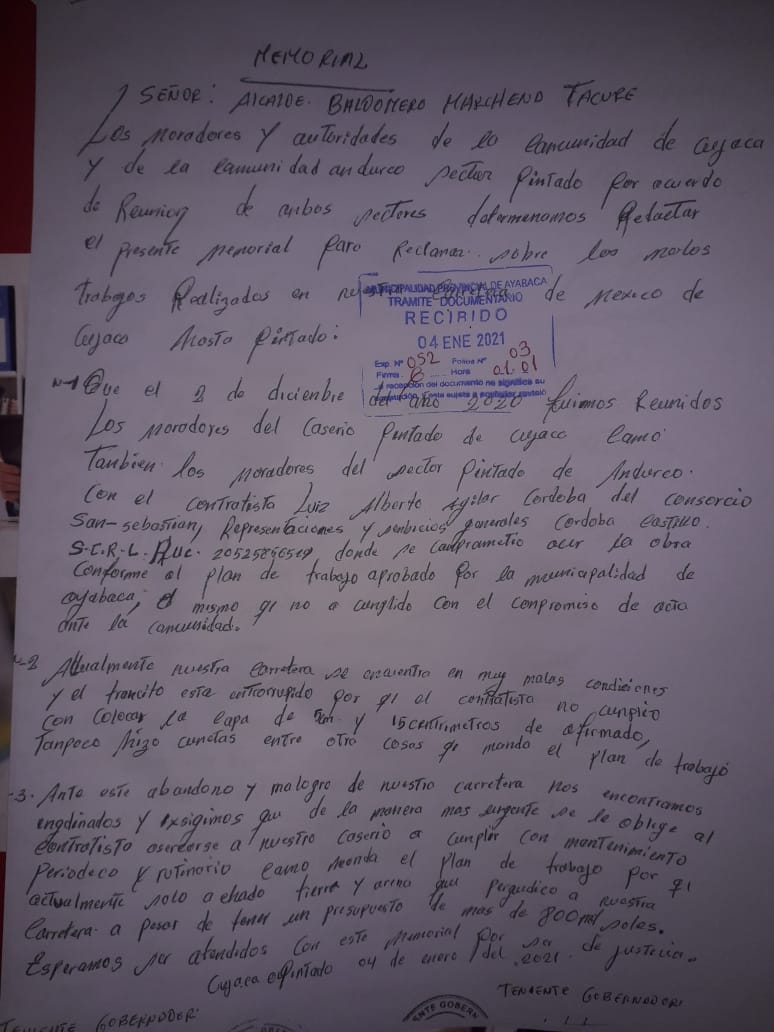 MEMORIAL
SEÑOR: ALCALDE. BALDOMERO MARCHENO TACURE
Los moradores y autoridades de la Camunidad de Cuyaca
y de la Camunidad andurco sector Pintado por acuerdo
de Reunion de ambos sectores determenamos Redactar
el presente Memorial para Reclamar sobre los malos
trabajos Realizados en carretera de Mexico de
Cuyaca hasta Pintado:
MUNICIPALIDAD PROVINCIAL DE AYABACA
TRAMITE DOCUMENTARIO
RECIBIDO
04 ENE 2021
Exp. Nº 052 Folios Nº 03
Firma Hora 01.01
La recepción del documento no significa su
N-1 Que el 2 de dicienbre del año 2020 fuimos Reunidos
Los moradores del Caserio Pintado de cuyaca Camo
Tanbien los moradores del sector Pintado de Andurco.
Con el contratista Luiz Alberto Agilar Cordoba del consorcio
San-sebastian, Representaciones y serbicios generales Cordoba Castillo.
S.C.R.L. Ruc. 20525856519, donde se camprametio acer la obra
Conforme al plan de trabajo aprobado por la municapalidad de
ayabaca, el mismo qi no a cunplido con el conpromiso de acta
ante la camunidad.
N-2 Actualmente nuestra Carretera se encuentra en muy malas condiciones
y el trancito esta entorrupido por qi el contratista no cunplio
con colocar la capa de y 15 centrimetros de afirmado,
Tanpoco hizo cunetas entre otra cosas qi manda el plan de trabajo
-3. Ante este abandono y malogro de nuestra carretera nos encontramos
engdinados y exsigimos que de la manera mas urgente se le oblige al
contratista asercarse a nuestro Caserio a cunplir con mantenimiento
Periodeco y rutinario Camo manda el plan de trabajo por qi
actualmente solo a echado tierra y arena que pergudica a nuestra
Carretera a pesar de tener un presupuesto de mas de 800 mil soles.
Esperamos ser atendidos con este Memorial por sa de justicia.
Cuyaca Pintado 04 de enero del 2021.
TENIENTE GOBERNADOR:
TENIENTE GOBERNADOR:
NTE GOBERN